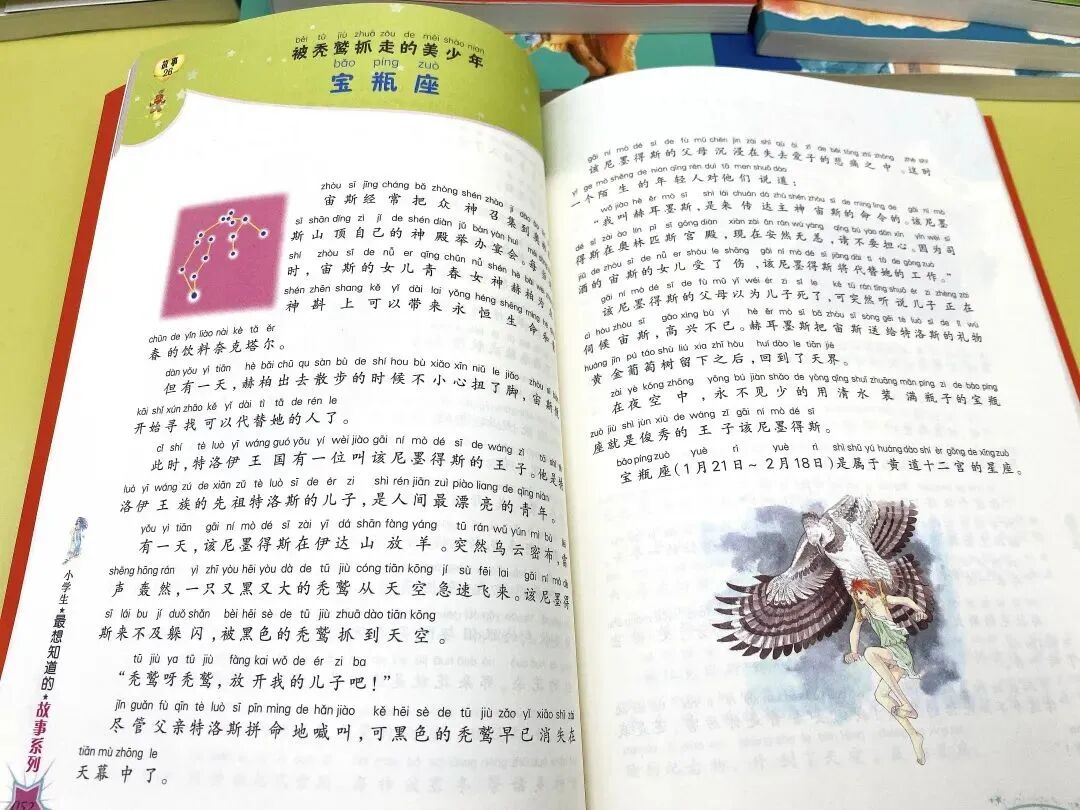 bèi tū jiù zhuā zǒu de měi shào nián
被秃鹫抓走的美少年
故事
26
bǎo píng zuò
宝瓶座
zhòu sī jīng cháng bǎ zhòng shén zhào jí dào
宙斯经常把众神召集到奥
sī shān dǐng zì jǐ de shén diàn jǔ bàn yàn huì
斯山顶自己的神殿举办宴会。每当
shí zhòu sī de nǚ ér qīng chūn nǚ shén hè bǎi
时，宙斯的女儿青春女神赫柏为
shén zhēn shang kě yǐ dài lai yǒng héng shēng mìng hé
神斟上可以带来永恒生命和
chūn de yǐn liào nài kè tǎ ěr
春的饮料奈克塔尔。
dàn yǒu yì tiān hè bǎi chū qu sàn bù de shí hou bù xiǎo xīn niǔ le jiǎo zhòu sī
但有一天，赫柏出去散步的时候不小心扭了脚，宙斯
kāi shǐ xún zhǎo kě yǐ dài tì tā de rén le
开始寻找可以代替她的人了。
cǐ shí tè luò yī wáng guó yǒu yí wèi jiào gāi ní mò dé sī de wáng zǐ tā shì
此时，特洛伊王国有一位叫该尼墨得斯的王子。他是特
luò yī wáng zú de xiān zǔ tè luò sī de ér zi shì rén jiān zuì piào liang de qīng nián
洛伊王族的先祖特洛斯的儿子，是人间最漂亮的青年。
yǒu yì tiān gāi ní mò dé sī zài yī dá shān fàng yáng tū rán wū yún mì bù
有一天，该尼墨得斯在伊达山放羊。突然乌云密布，雷
shēng hōng rán yì zhī yòu hēi yòu dà de tū jiù cóng tiān kōng jí sù fēi lai gāi ní mò dé
声轰然，一只又黑又大的秃鹫从天空急速飞来。该尼墨得
sī lái bu jí duǒ shǎn bèi hēi sè de tū jiù zhuā dào tiān kōng
斯来不及躲闪，被黑色的秃鹫抓到天空。
tū jiù ya tū jiù fàng kai wǒ de ér zi ba
“秃鹫呀秃鹫，放开我的儿子吧！”
jǐn guǎn fù qīn tè luò sī pīn mìng de hǎn jiào kě hēi sè de tū jiù zǎo yǐ xiāo shī zài
尽管父亲特洛斯拼命地喊叫，可黑色的秃鹫早已消失在
tiān mù zhōng le
天幕中了。
小学生★最想知道的★故事系列
152
gāi ní mò dé sī de fù mǔ chén jìn zài shī qù ài zǐ de bēi tòng zhī zhōng zhè shí
该尼墨得斯的父母沉浸在失去爱子的悲痛之中。这时
yí gè mò shēng de nián qīng rén duì tā men shuō dào
一个陌生的年轻人对他们说道：
wǒ jiào hè ěr mò sī shì lái chuán dá zhǔ shén zhòu sī de mìng lìng de gāi ní mò
“我叫赫耳墨斯，是来传达主神宙斯的命令的。该尼墨
dé sī zài ào lín pǐ sī gōng diàn xiàn zài ān rán wú yàng qǐng bú yào dān xīn yīn wèi sī
得斯在奥林匹斯宫殿，现在安然无恙，请不要担心。因为司
jiǔ de zhòu sī de nǚ ér shòu le shāng gāi ní mò dé sī jiāng dài tì tā de gōng zuò
酒的宙斯的女儿受了伤，该尼墨得斯将代替她的工作。”
gāi ní mò dé sī de fù mǔ yǐ wéi ér zi sǐ le kě tū rán tīng shuō ér zi zhèng zài
该尼墨得斯的父母以为儿子死了，可突然听说儿子正在
cì hòu zhòu sī gāo xìng bù yǐ hè ěr mò sī bǎ zhòu sī sòng gěi tè luò sī de lǐ wù
伺候宙斯，高兴不已。赫耳墨斯把宙斯送给特洛斯的礼物
huáng jīn pú táo shù liú xia zhī hòu huí dào le tiān jiè
黄金葡萄树留下之后，回到了天界。
zài yè kōng zhōng yǒng bú jiàn shǎo de yòng qīng shuǐ zhuāng mǎn píng zi de bǎo píng
在夜空中，永不见少的用清水装满瓶子的宝瓶
zuò jiù shì jùn xiù de wáng zǐ gāi ní mò dé sī
座就是俊秀的王子该尼墨得斯。
bǎo píng zuò yuè rì yuè rì shì shǔ yú huáng dào shí èr gōng de xīng zuò
宝瓶座(1月21日~2月18日)是属于黄道十二宫的星座。